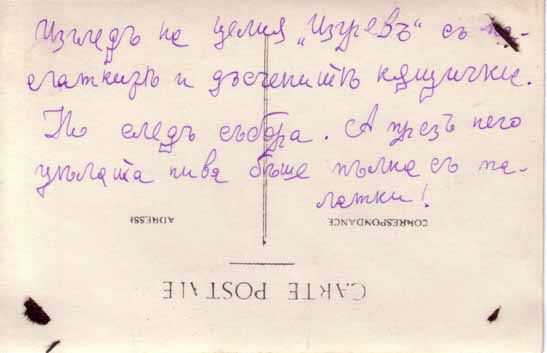 Изгледъ на целия „Изгревъ“ съ па-
латкитѣ и дъсченитѣ кѫщички.
То следъ събора. А презъ него
цѣлата нива бѣше пълна съ па-
латки!
ADRESSE
CORRESPONDANCE
CARTE POSTALE